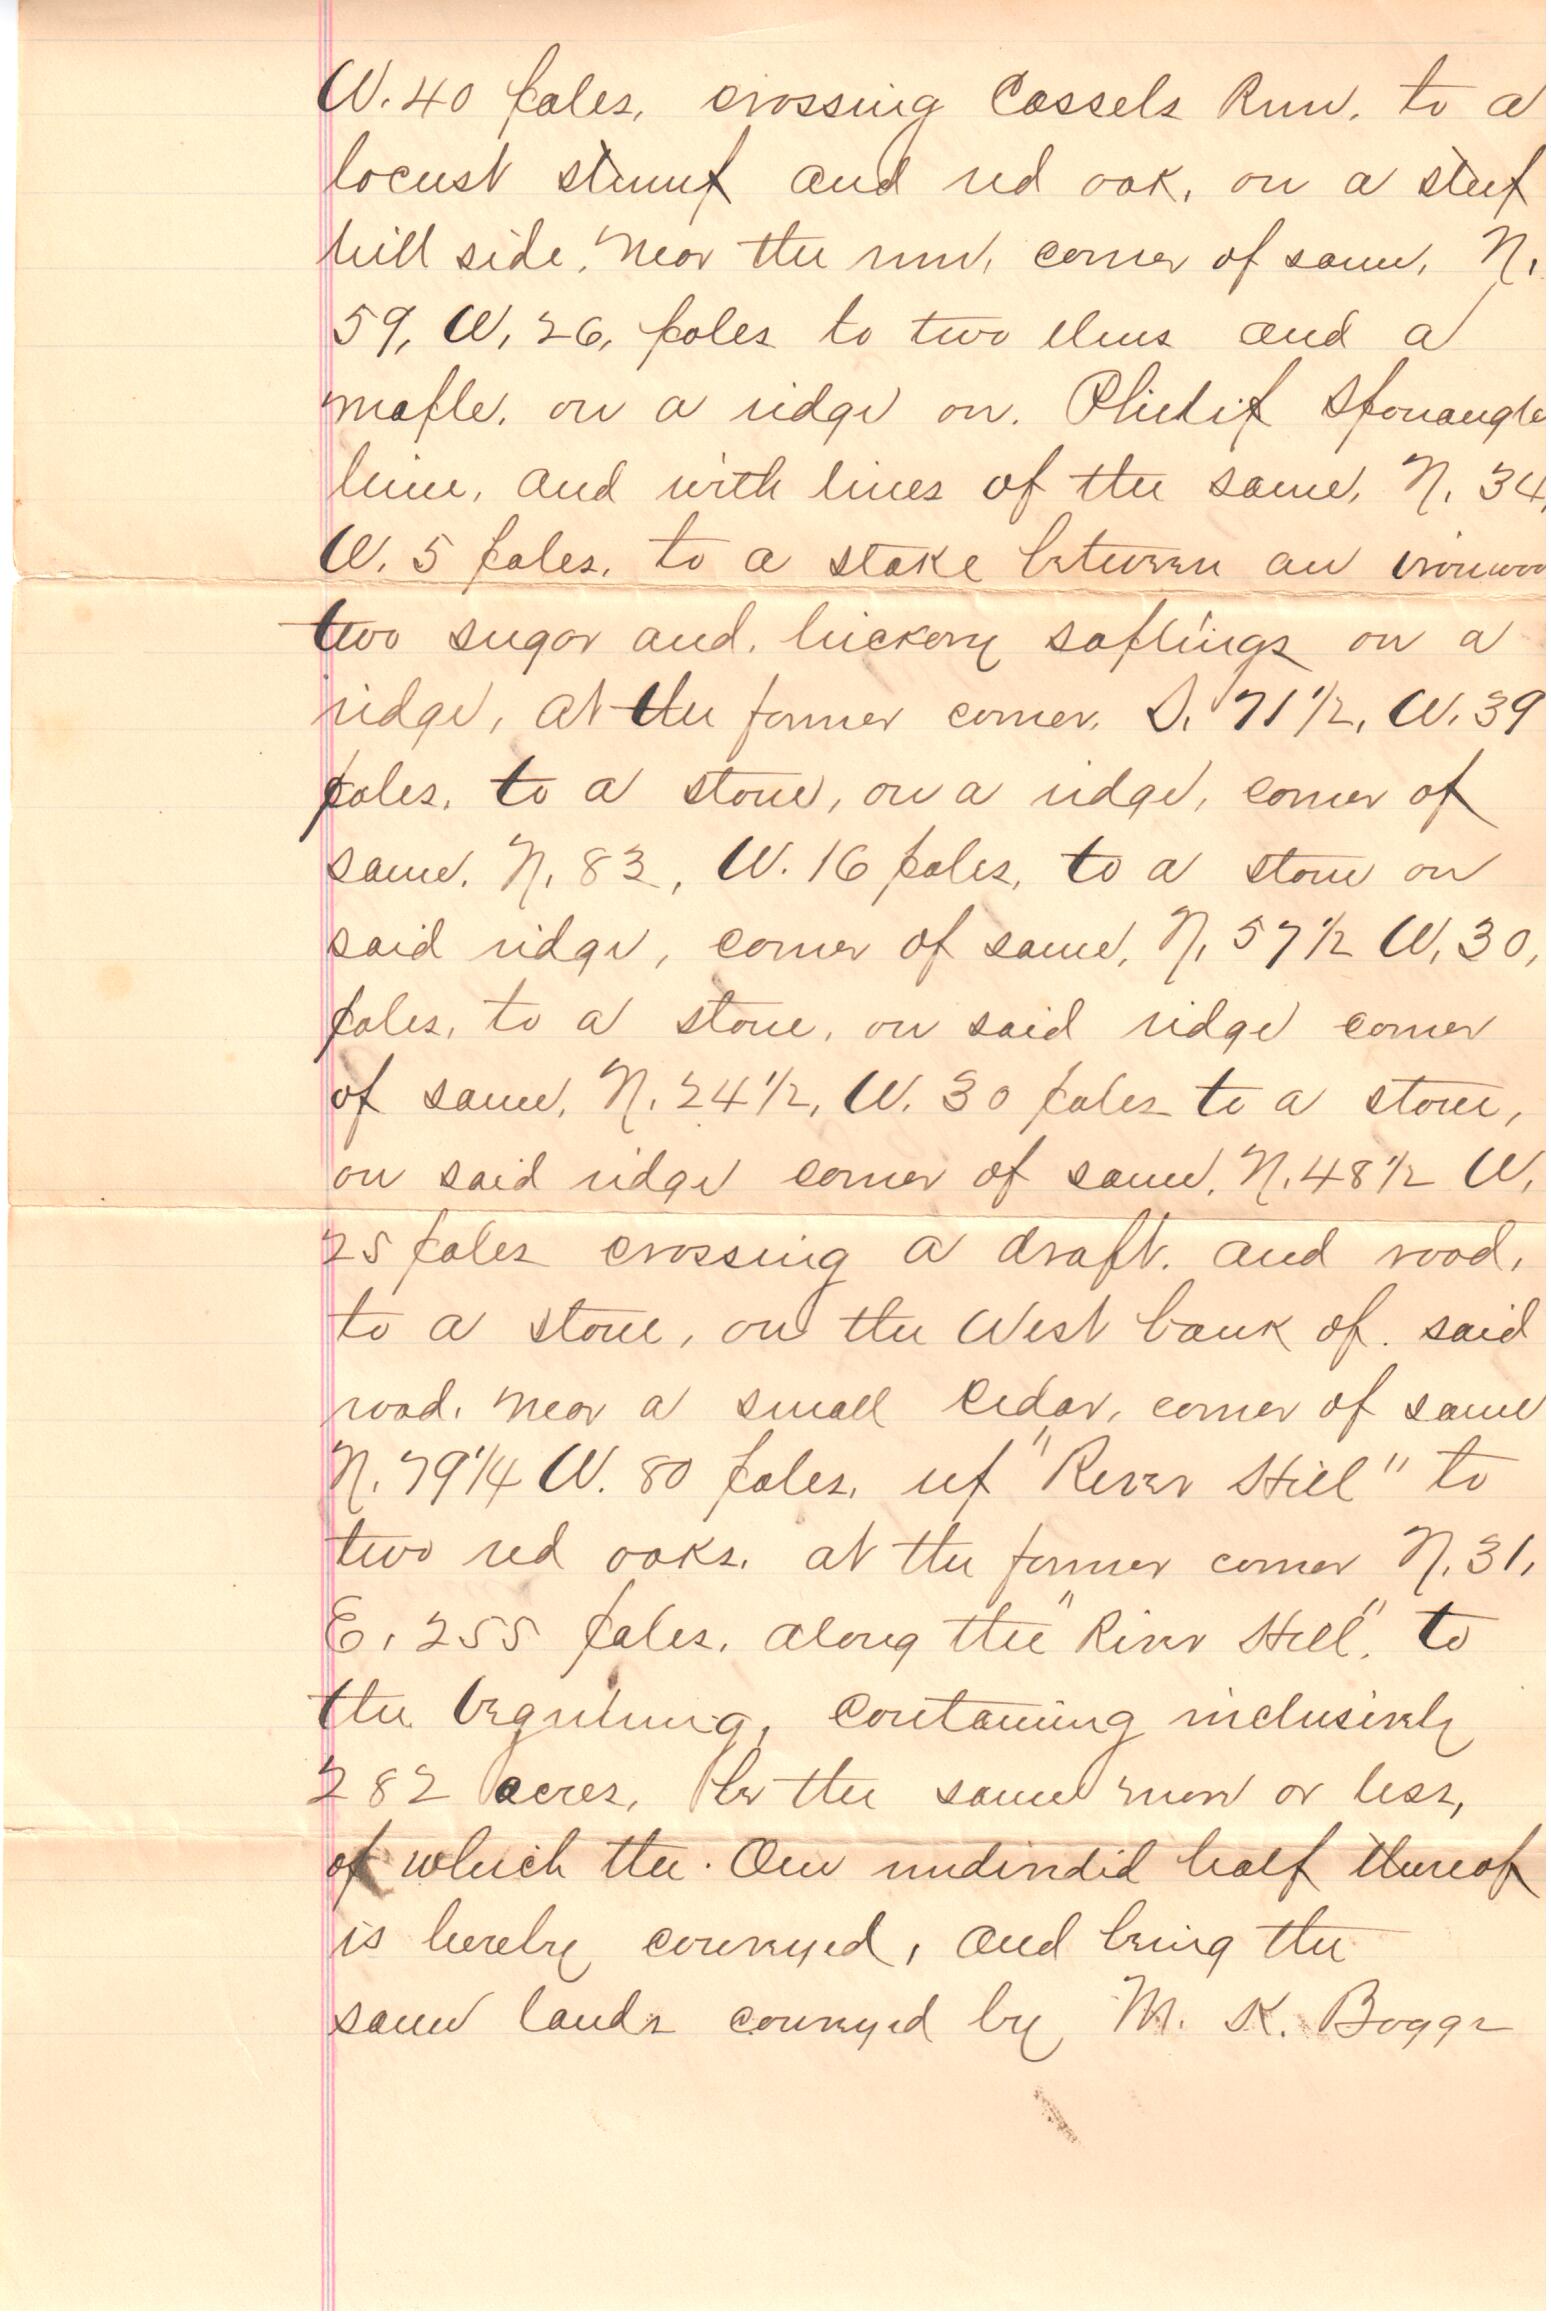 W. 40 poles, crossing Cassels Run, to a
locust stump and red oak, on a steep
hill side, near the run, corner of same, N.
59, W, 26, poles to two elms and a
maple, on a ridge on. Philip Sponaugle
line, and with lines of the same, N. 34,
W. 5 poles, to a stake between an ironwoo
two sugar and, hickory saplings on a
ridge, at the former corner, S. 71 1/2, W. 39
poles, to a stone, on a ridge, corner of
same, N. 83, W. 16 poles, to a stone on
said ridge, corner of same, N, 57 1/2 W, 30,
poles, to a stone, on said ridge corner
of same, N. 24 1/2, W. 30 poles to a stone,
on said ridge corner of same, N. 48 1/2 W,
25 poles crossing a draft. and road,
to a stone, on the West bank of. said
road, near a small cedar, corner of same
N. 79 1/4 W. 80 poles, up "River Hill" to
two red oaks, at the former corner N. 31,
E, 255 poles, along the "River Hill", to
the begining, containing inclusively
282 acres, be the same more or less,
of which the. One undivided half thereof
is hereby conveyed, and being the
same lands conveyed by M. K. Boggs